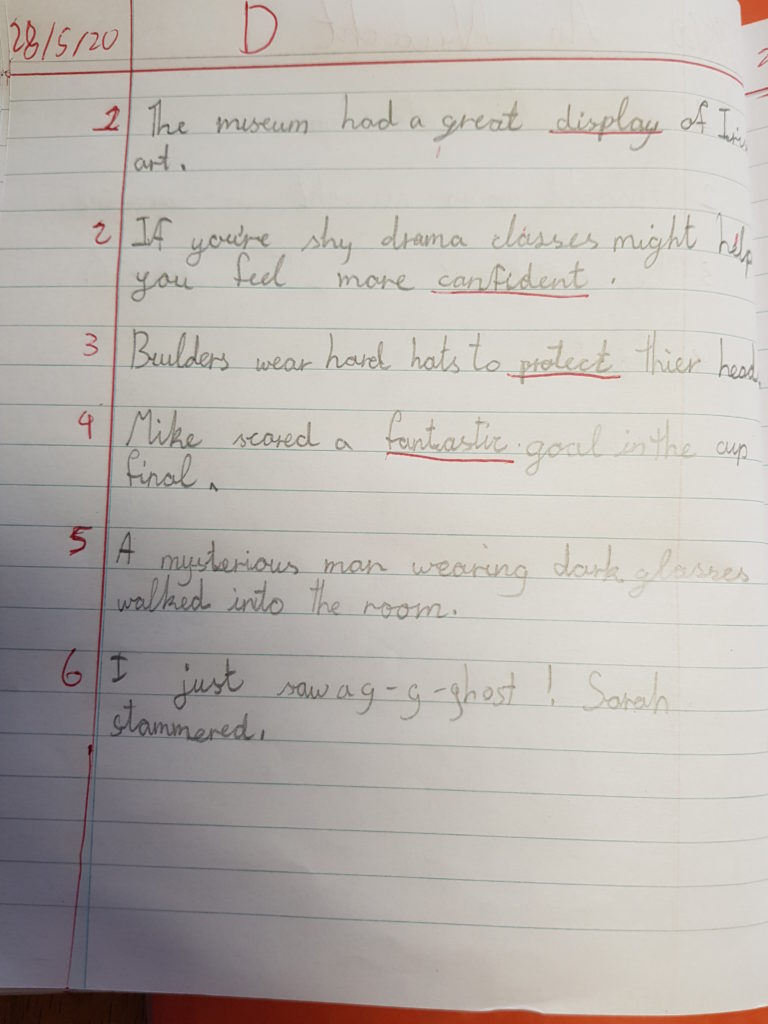 28/5/20 D
1 The museum had a great display of
art.
2 If you're shy drama classes might help
you feel more confident.
3 Builders wear hard hats to protect thier head.
4 Mike scored a fantastic goal in the cup
final.
5 A mysterious man wearing dark glasses
walked into the room.
6 I just saw a g-g-ghost! Sarah
stammered.